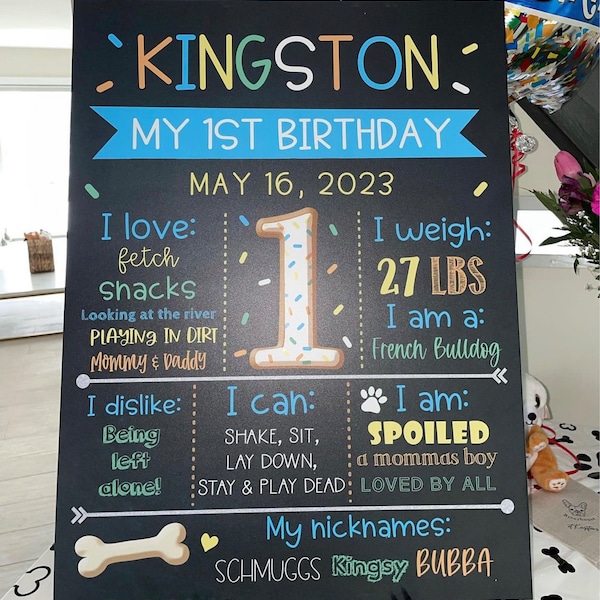 KINGSTON
MY 1ST BIRTHDAY
MAY 16, 2023
I love:
fetch
snacks
Looking at the river
PLAYING IN DIRT
Mommy & Daddy
1
I weigh:
27 LBS
I am a:
French Bulldog
I dislike:
Being
left
alone!
I can:
SHAKE, SIT,
LAY DOWN,
STAY & PLAY DEAD
I am:
SPOILED
a mommas boy
LOVED BY ALL
My nicknames:
SCHMUGGS Kingsy BUBBA